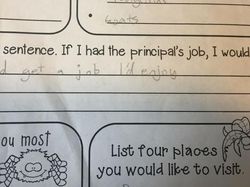 goats
sentence. If I had the principal's job, I would
d get a job I'd enjoy
ou most
List four places
you would like to visit.